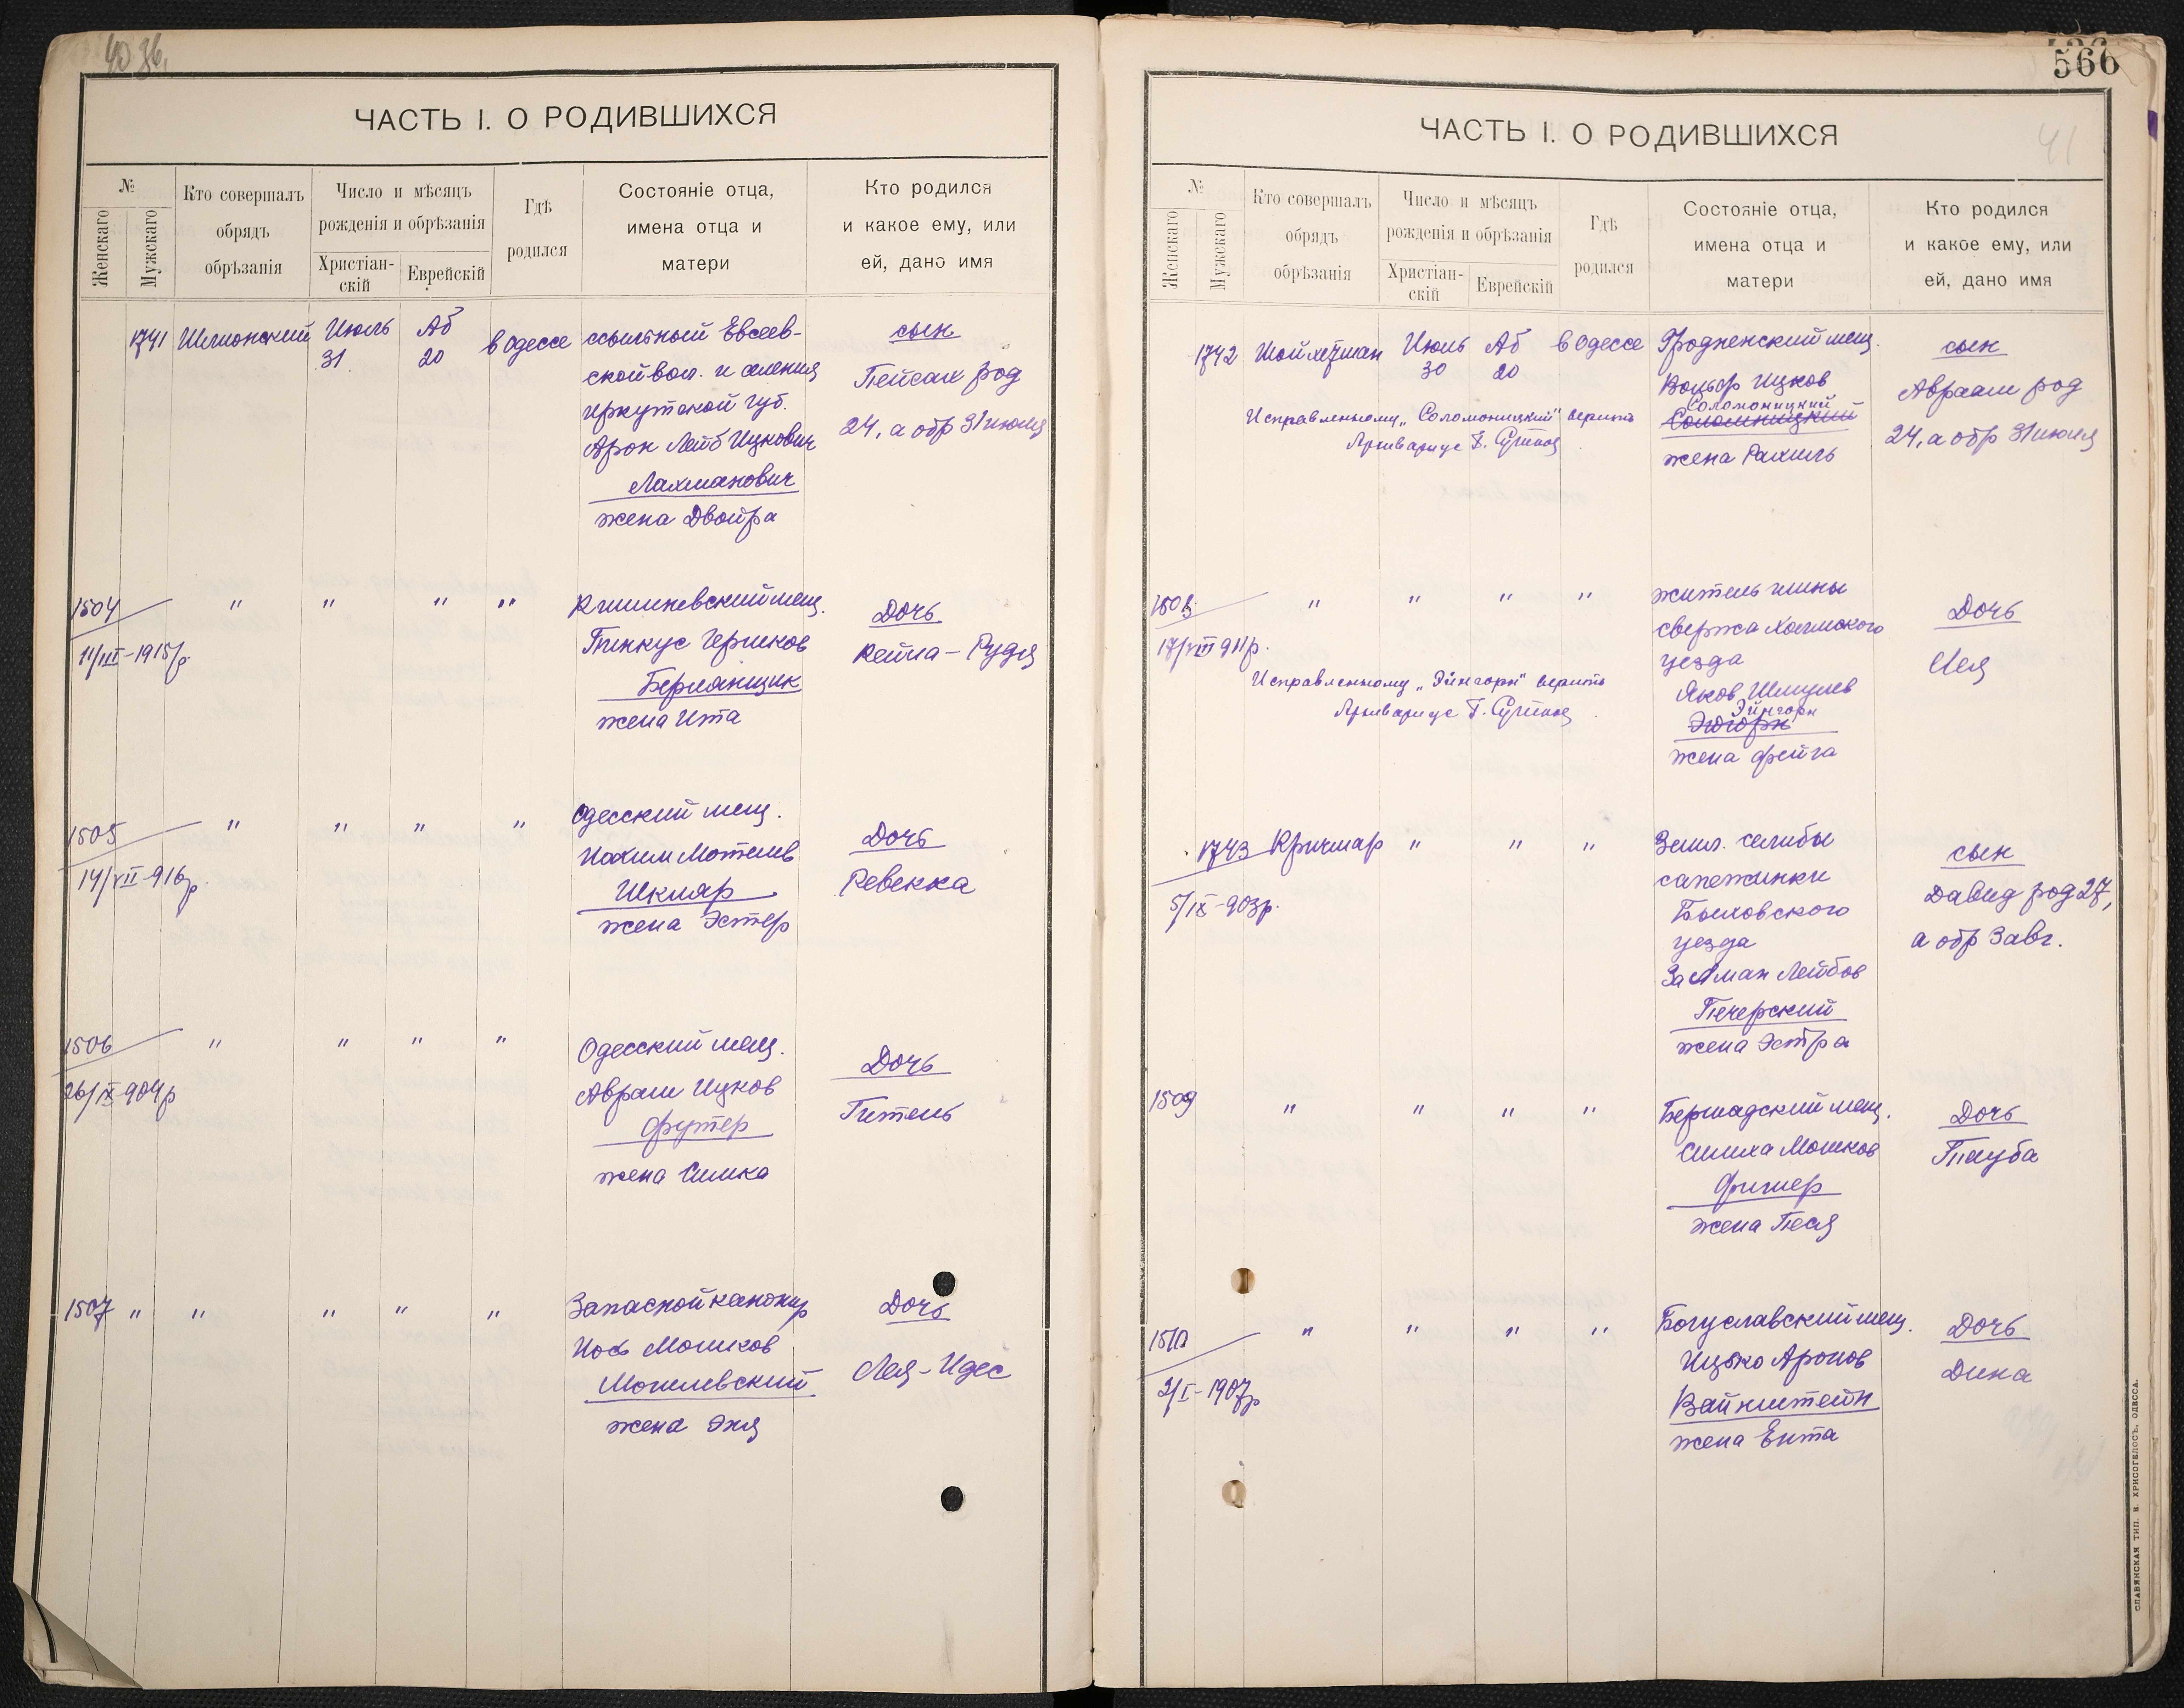 ЧАСТЬ I. О РОДИВШИХСЯ
№
Женскаго
Мужскаго
Кто совершалъ
обрядъ
обрѣзанія
Число и мѣсяцъ
рожденія и обрѣзанія
Христіан-
скій
Еврейскій
Гдѣ
родился
Состояніе отца,
имена отца и
матери
Кто родился
и какое ему, или
ей, дано имя
1741 Шлионский Июль 31 Аб 20 в Одессе
ссыльный Евсеев-
ской вол. и селения
Иркутской губ.
Арон Лейб Ицкович
Лахманович
жена Двойра
сын
Пейсах род
24, а обр 31 июля
1504 " " " "
11/III-1915 р.
Кишиневский мещ.
Пинкус Гершков
Берлянщик
жена Ита
Дочь
Кейла - Рудя
1505 " " " "
14/VII-916 р.
Одесский мещ.
Иохим Мотелев
Шкляр
жена Эстер
Дочь
Ревекка
1506 " " " "
26/IX-904 р
Одесский мещ.
Абрам Ицков
Футер
жена Симка
Дочь
Гитель
1507 " " " " "
Запасной канонир
Иось Мошков
Могилевский
жена Эня
Дочь
Лея-Идес
566
41
ЧАСТЬ I. О РОДИВШИХСЯ
№
Женскаго
Мужскаго
Кто совершалъ
обрядъ
обрѣзанія
Число и мѣсяцъ
рожденія и обрѣзанія
Христіан-
скій
Еврейскій
Гдѣ
родился
Состояніе отца,
имена отца и
матери
Кто родился
и какое ему, или
ей, дано имя
1742 Шойхетман Июль 30 Аб 20 в Одессе
Гродненский мещ.
Вольф Ицков
Соломоницкий
жена Рахиль
сын
Авраам род
24, а обр 31 июля
Исправленному „Соломоницкий" верить
Архивариус
" " " "
17/VIII 911 р.
житель гмины
свержа Холмского
уезда
Яков Шмулев
Эйнгорн
жена Фейга
Дочь
Лея
Исправленному „Эйнгорн" верить
Архивариус
1743 Кричмар " " "
5/IX-903 р.
Земл. селибы
сапежинки
Быховского
уезда
Залман Лейбов
Печерский
жена Эстра
сын
Давид род 27,
а обр 3 авг.
1509 " " " "
Бершадский мещ.
Симха Мошков
Фишер
жена Песя
Дочь
Тауба
1510 " " " "
2/I-1907 р
Богуславский мещ.
Ицько Аронов
Вайнштейн
жена Ента
Дочь
Дина
СЛАВЯНСКАЯ ТИП. Н. ХРИСОГЕЛОСЪ, ОДЕССА.